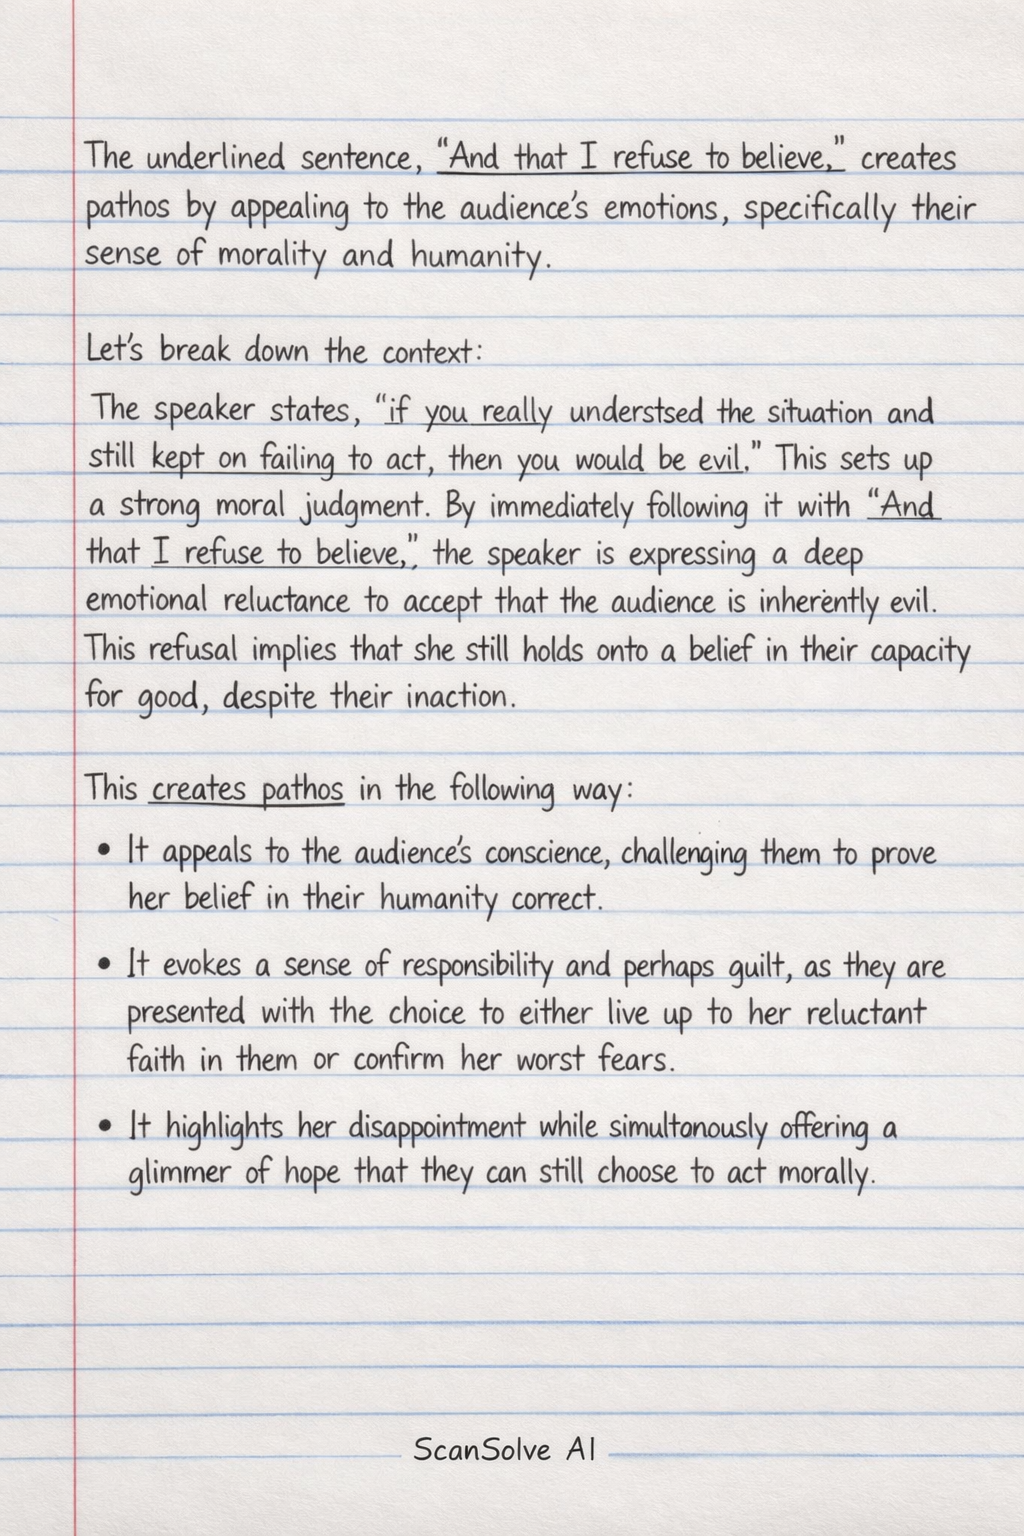 The underlined sentence, “And that I refuse to believe,” creates
pathos by appealing to the audience’s emotions, specifically their
sense of morality and humanity.
Let’s break down the context:
The speaker states, “if you really understsed the situation and
still kept on failing to act, then you would be evil.” This sets up
a strong moral judgment. By immediately following it with “And
that I refuse to believe,” the speaker is expressing a deep
emotional reluctance to accept that the audience is inherently evil.
This refusal implies that she still holds onto a belief in their capacity
for good, despite their inaction.
This creates pathos in the following way:
• It appeals to the audience’s conscience, challenging them to prove
her belief in their humanity correct.
• It evokes a sense of responsibility and perhaps guilt, as they are
presented with the choice to either live up to her reluctant
faith in them or confirm her worst fears.
• It highlights her disappointment while simultonously offering a
glimmer of hope that they can still choose to act morally.
ScanSolve AI